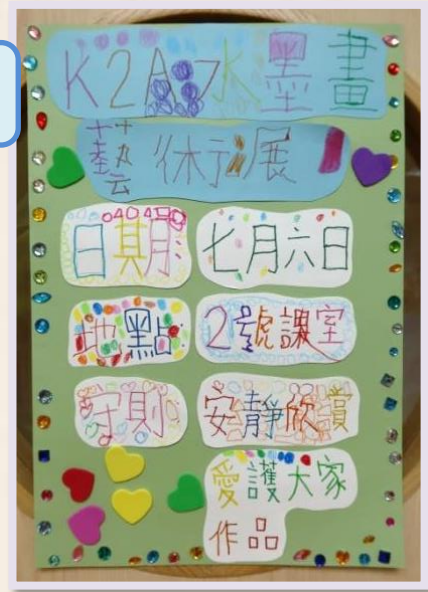 K2A水墨畫
藝術展
日期 七月六日
地點 2號課室
守則 安靜欣賞
愛護大家
作品